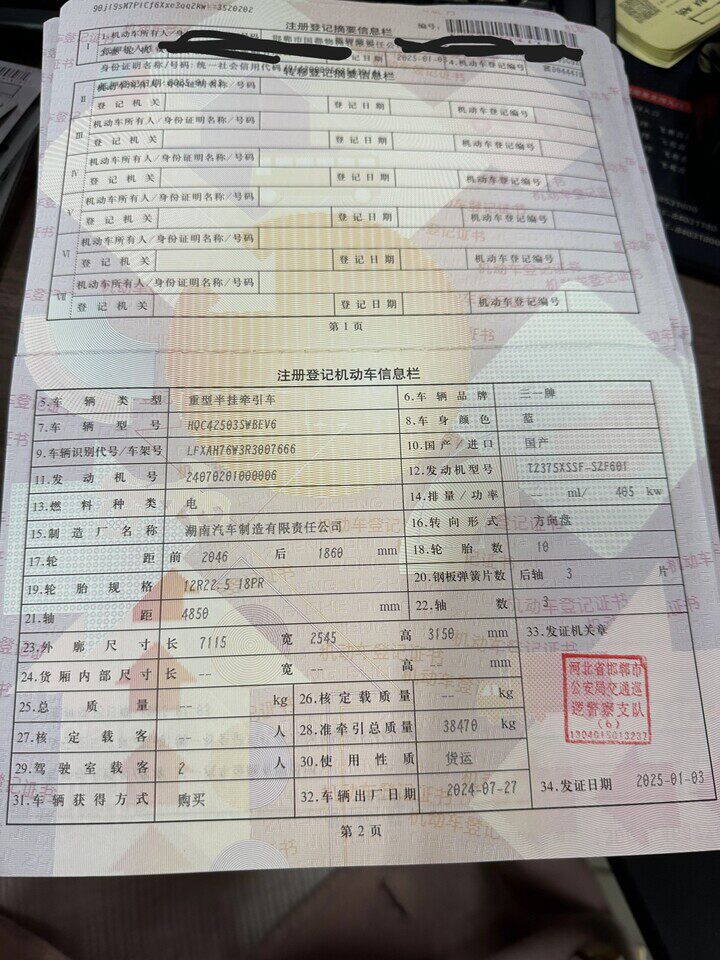 注册登记摘要信息栏
编号:
I
2025-01-03
4.机动车登记编号
身份证明名称/号码:统一社会信用代码
转移登记摘要信息栏
II
登记机关
登记日期
机动车登记编号
III
机动车所有人/身份证明名称/号码
登记机关
登记日期
机动车登记编号
IV
机动车所有人/身份证明名称/号码
登记机关
登记日期
机动车登记编号
V
机动车所有人/身份证明名称/号码
登记机关
登记日期
机动车登记编号
VI
机动车所有人/身份证明名称/号码
登记机关
登记日期
机动车登记编号
VII
机动车所有人/身份证明名称/号码
登记机关
登记日期
机动车登记编号
第1页
注册登记机动车信息栏
5.车辆类型 重型半挂牵引车 6.车辆品牌 三一牌
7.车辆型号 HQC42503SWBEV6 8.车身颜色 蓝
9.车辆识别代号/车架号 LFXAH76W3R3007666 10.国产/进口 国产
11.发动机号 24070201000006 12.发动机型号 TZ375XSSF-SZF601
13.燃料种类 电 14.排量/功率 -- ml/ 405 kw
15.制造厂名称 湖南汽车制造有限责任公司 16.转向形式 方向盘
17.轮距 前 2046 后 1860 mm 18.轮胎数 10
19.轮胎规格 12R22.5 18PR 20.钢板弹簧片数 后轴 3 片
21.轴距 4850 mm 22.轴数 3
23.外廓尺寸 长 7115 宽 2545 高 3150 mm 33.发证机关章
24.货厢内部尺寸 长 -- 宽 -- 高 -- mm
25.总质量 -- kg 26.核定载质量 -- kg
27.核定载客 -- 人 28.准牵引总质量 38470 kg
29.驾驶室载客 2 人 30.使用性质 货运
31.车辆获得方式 购买 32.车辆出厂日期 2024-07-27 34.发证日期 2025-01-03
河北省邯郸市
公安局交通巡
逻警察支队
(6)
1304015013232
第2页